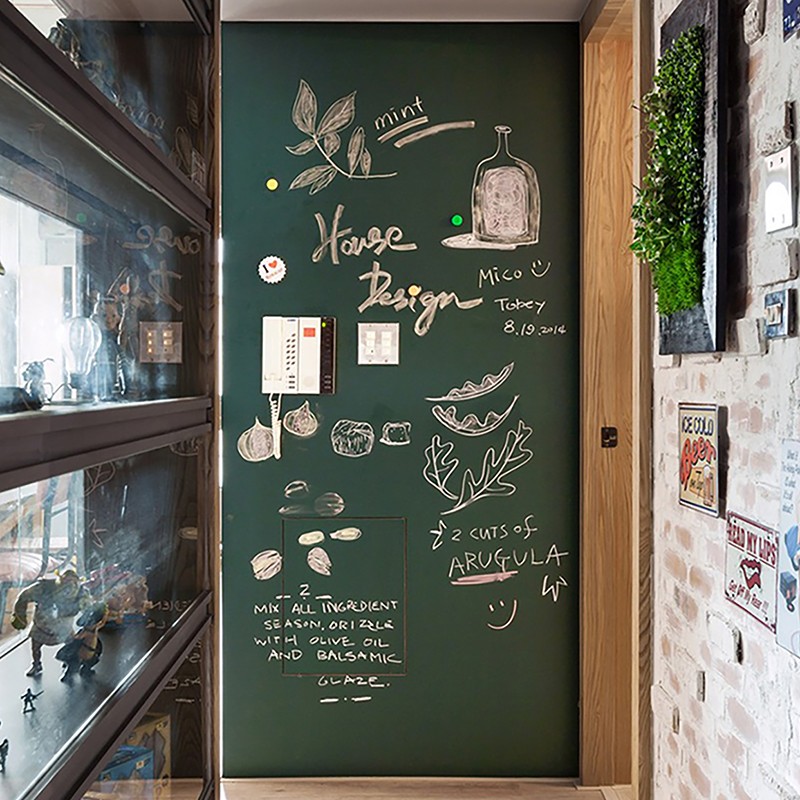 mint
House
Design
Mico
Tobey
8.19.2014
I
2 CUTS of
ARUGULA
2
MIX ALL INGREDIENT
SEASON, DRIZZLE
WITH OLIVE OIL
AND BALSAMIC
GLAZE.
ICE COLD
BEER
READ MY LIPS